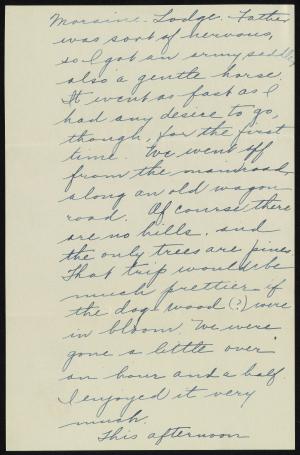 Moraine Lodge. Father
was sort of nervous,
so I got an army saddle,
also a gentle horse.
It went as fast as I
had any desire to go,
though, for the first
time. We went off
from the main road,
along an old wagon
road. Of course there
are no hills, and
the only trees are pines.
That trip would be
much prettier if
the dog-wood (?) were
in bloom. We were
gone a little over
an hour and a half.
I enjoyed it very
much.
This afternoon